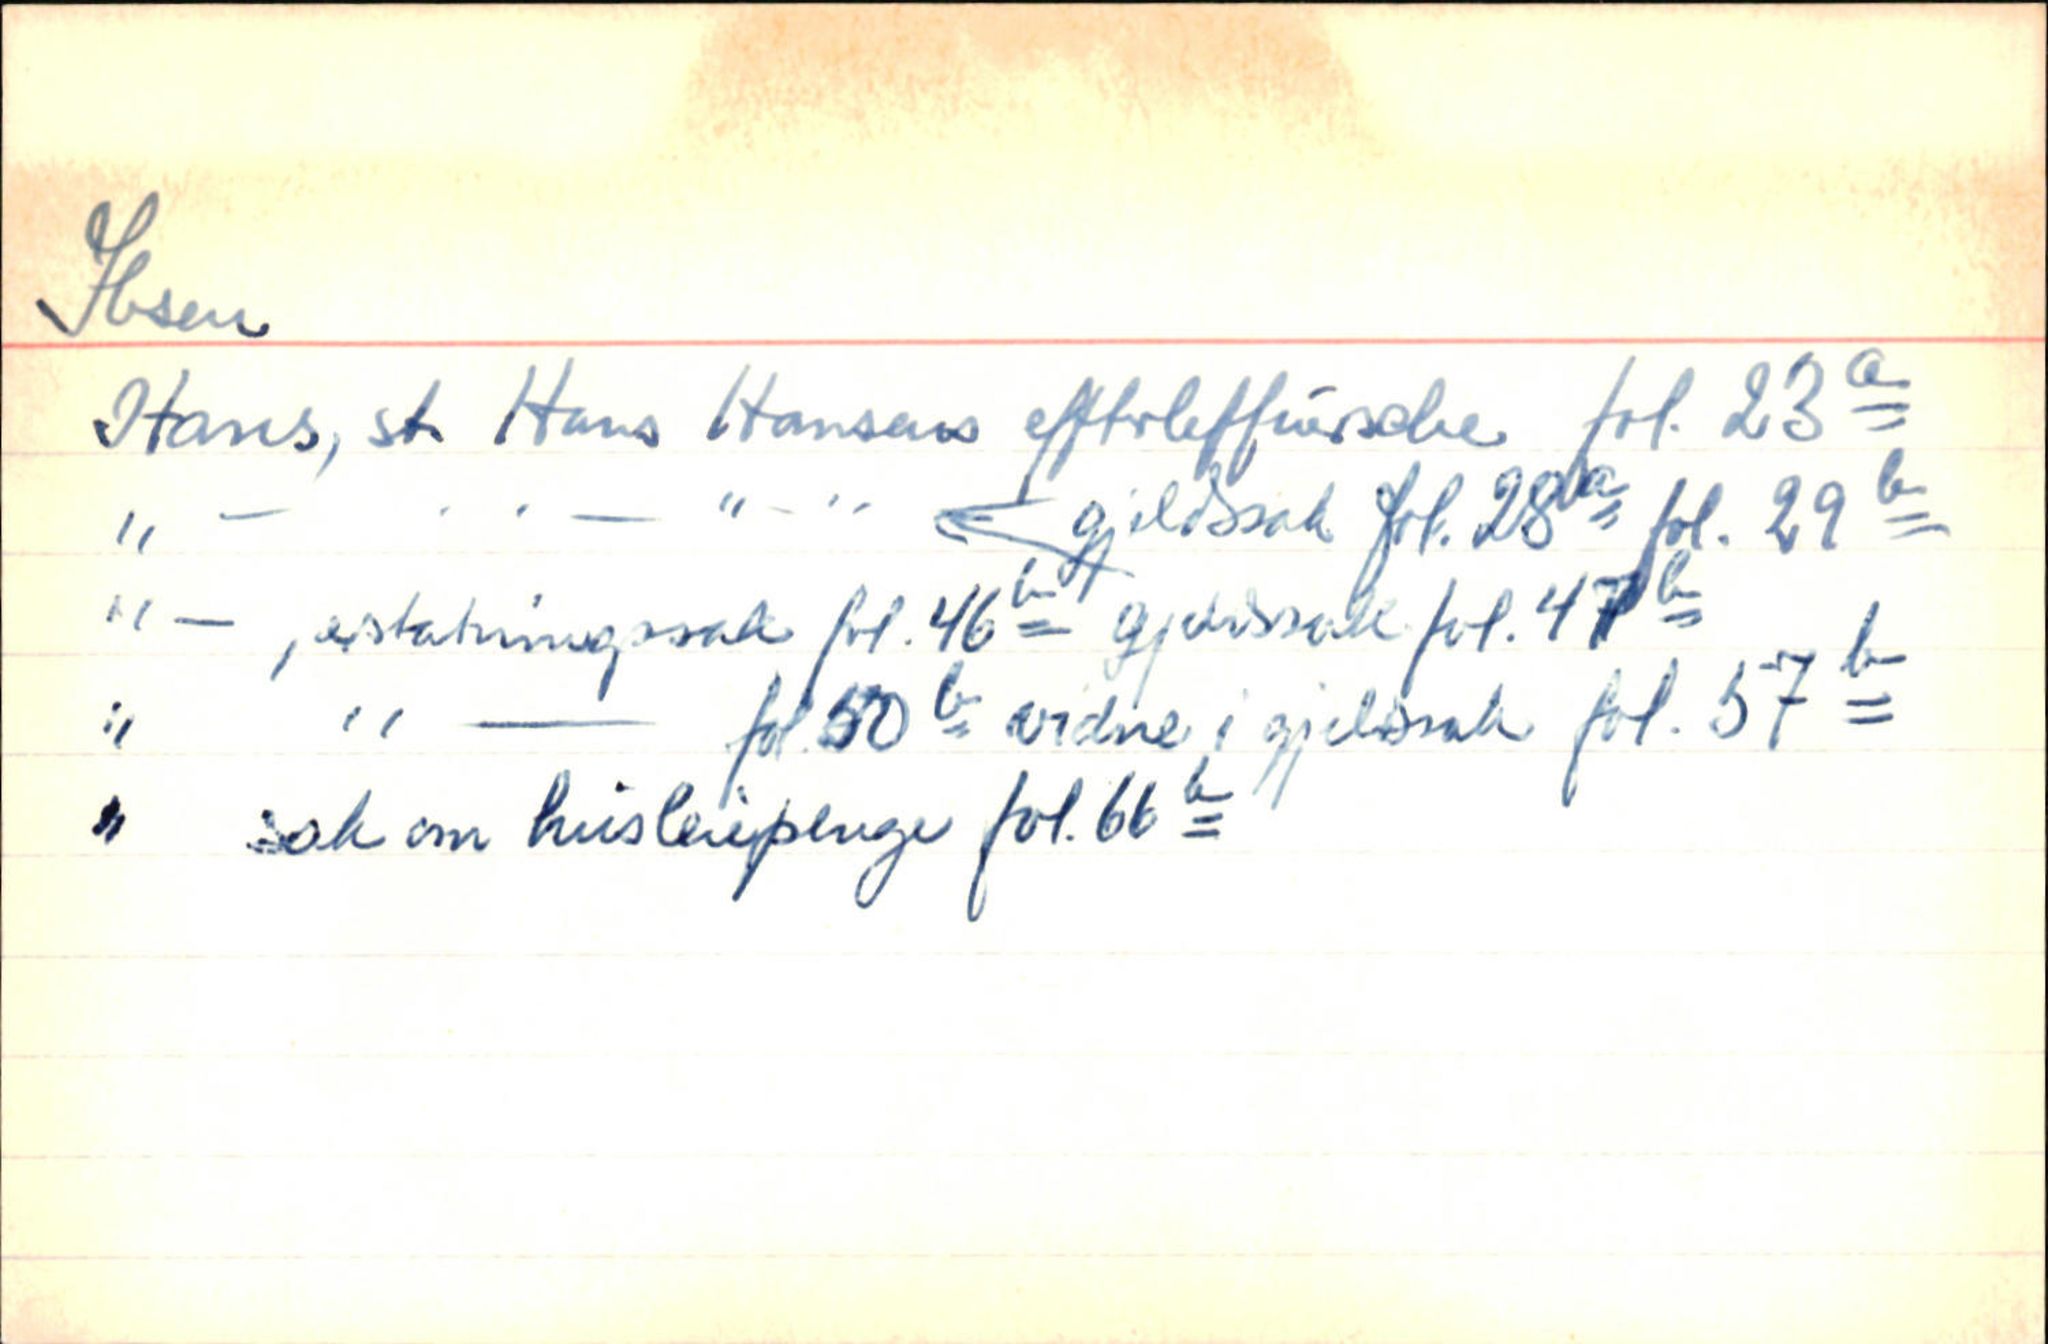 Ibsen
Hans, st. Hans Hansens effterleffuersche fol. 23 a
" — " — " - " gjeldssak fol. 28 a fol. 29 b
" — , erstatningssak fol. 46 b gjeldssak fol. 47 b
" " — fol. 50 b vidne i gjeldssak fol. 57 b
" sak om husleiepenge fol. 66 b